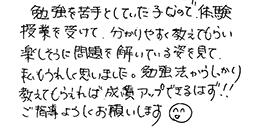 勉強を苦手としていた子なので、体験
授業を受けて、分かりやすく教えてもらい
楽しそうに問題を解いている姿を見て、
私もうれしく思いました。勉強法からしっかり
教えてもらえれば成績アップできるはず!!
ご指導よろしくお願いします